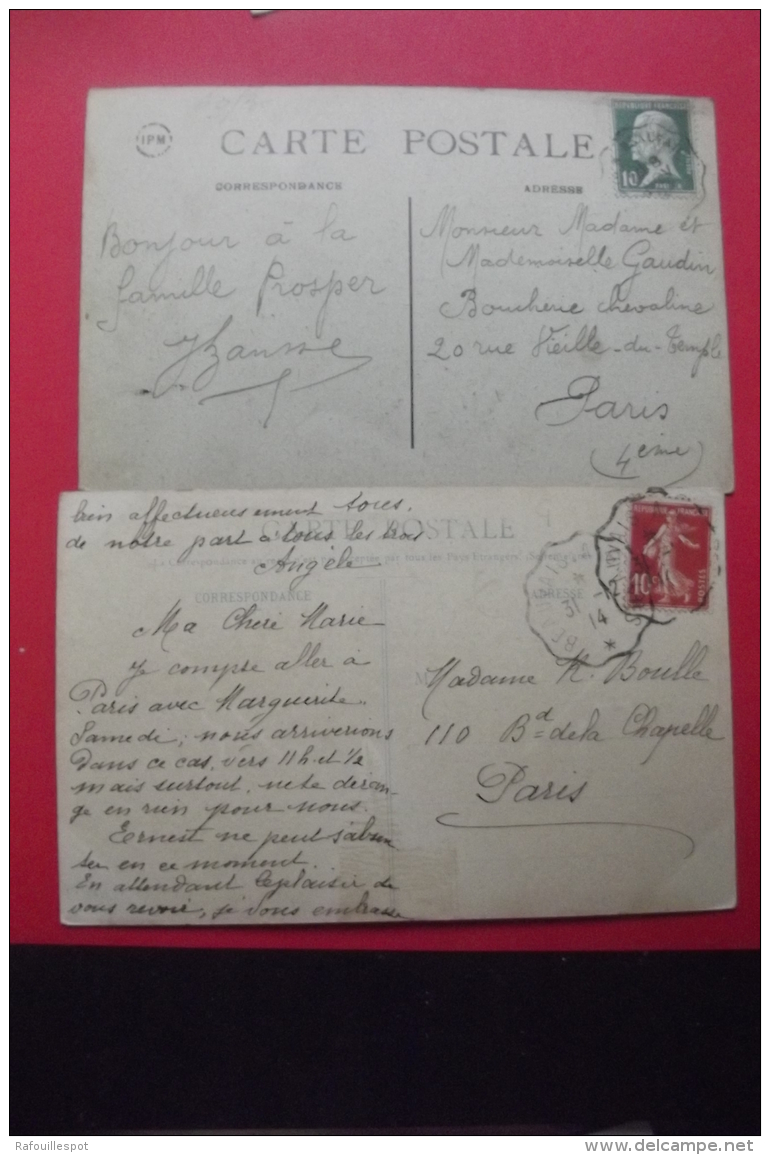 IPM
CARTE POSTALE
CORRESPONDANCE
ADRESSE
REPUBLIQUE FRANÇAISE
10
Bonjour à la
famille Prosper
Monsieur Madame et
Mademoiselle Gaudin
Boucherie chevaline
20 rue Vieille-du-Temple
Paris
(4ème)
bien affectueusement tous,
de notre part à tous les trois
Angèle
CARTE POSTALE
CORRESPONDANCE
ADRESSE
10
POSTES
BEAUVAIS
31
14
Ma Cheré Marie
Je compte aller à
Paris avec Marguerite
Samedi, nous arriverions
Dans ce cas, vers 11h et 1/2
mais surtout, ne te déran-
ge en rien pour nous.
Ernest ne peut s'absen
ter en ce moment.
En attendant le plaisir de
vous revoir, je vous embrasse
Madame M. Boulle
110 Bd de la Chapelle
Paris
Rafouillespot
www.delcampe.net